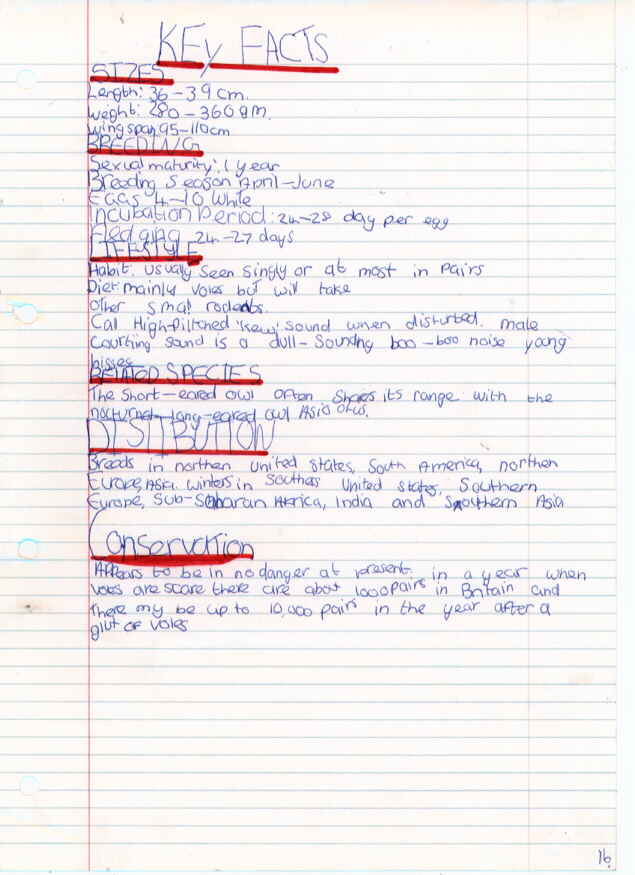 KEy FACTS
SIZES
Length: 36-39 cm.
weight: 280-360 gm.
wingspan 95-110cm
BREEDING
Sexual maturity: 1 year
Breeding Season April-June
EGGS 4-10 White
INCUBATION Period: 24-28 day per egg
Fledging 24-27 days
LIFESTYLE
Habit. usually seen singly or at most in pairs
Diet: mainly voles but will take
other small rodents.
Call High-pitched 'kew' sound when disturbed. male
courting sound is a dull-sounding boo-boo noise young
hisses
RELATED SPECIES
The Short-eared owl often Shares its range with the
nocturnal long-eared owl Asio otus.
DISTIBUTION
Breads in northen United States, South America, northen
Europe, Asia. winters in Southen United States, Southern
Europe, Sub-Saharan Africa, India and Southern Asia
Conservation
Appears to be in no danger at present. in a year when
voles are scare there are about 1000 pairs in Britain and
There my be up to 10,000 pairs in the year after a
glut of voles
16.